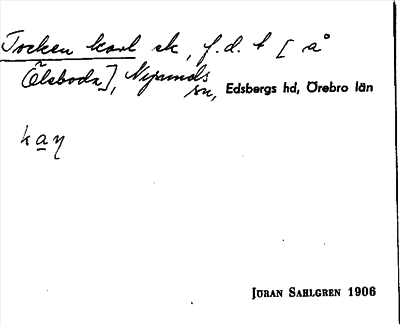 Tocken karl sk, f.d. t [å
Ölsboda], Nysunds
sn, Edsbergs hd, Örebro län
kaŋ
JÖRAN SAHLGREN 1906